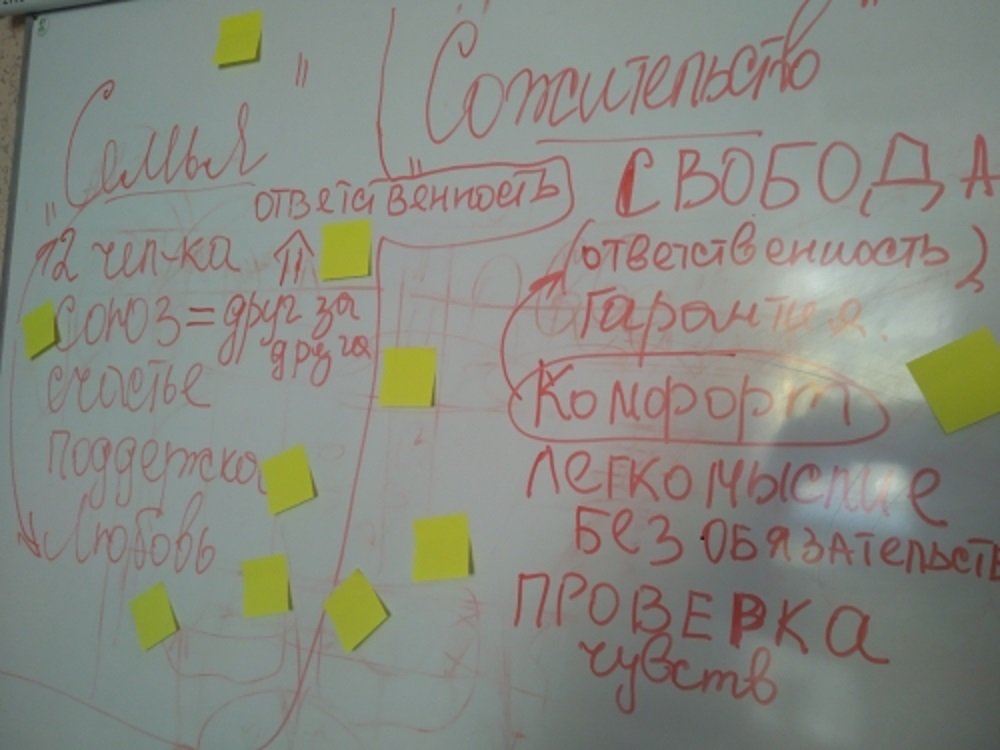 "Семья"
ответственность
2 чел-ка
союз = друг за
друга
счастье
поддержка
Любовь
"Сожительство"
СВОБОДА
(ответственность)
Гарантия
Комфорт
Легкомыслие
Без обязательств
ПРОВЕРКА
чувств